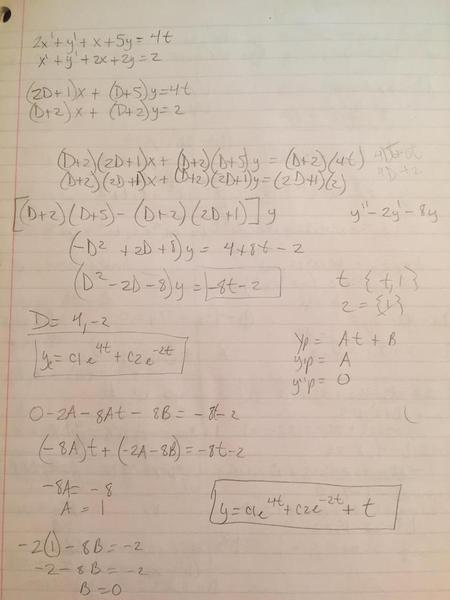 2x' + y' + x + 5y = 4t
x' + y' + 2x + 2y = 2
(2D+1)x + (D+5)y = 4t
(D+2)x + (D+2)y = 2
(D+2)(2D+1)x + (D+2)(D+5)y = (D+2)(4t)
(D+2)(2D+1)x + (D+2)(2D+1)y = (2D+1)(2)
[(D+2)(D+5) - (D+2)(2D+1)]y y'' - 2y' - 8y
(-D² + 2D + 8)y = 4+8t-2
(D² - 2D - 8)y = -8t-2
t {t,1}
2 = {1}
D = 4, -2
yc = c1e^4t + c2e^-2t
yp = At + B
y'p = A
y''p = 0
0 - 2A - 8At - 8B = -8t-2
(-8A)t + (-2A-8B) = -8t-2
-8A = -8
A = 1
y = c1e^4t + c2e^-2t + t
-2(1) - 8B = -2
-2 - 8B = -2
B = 0